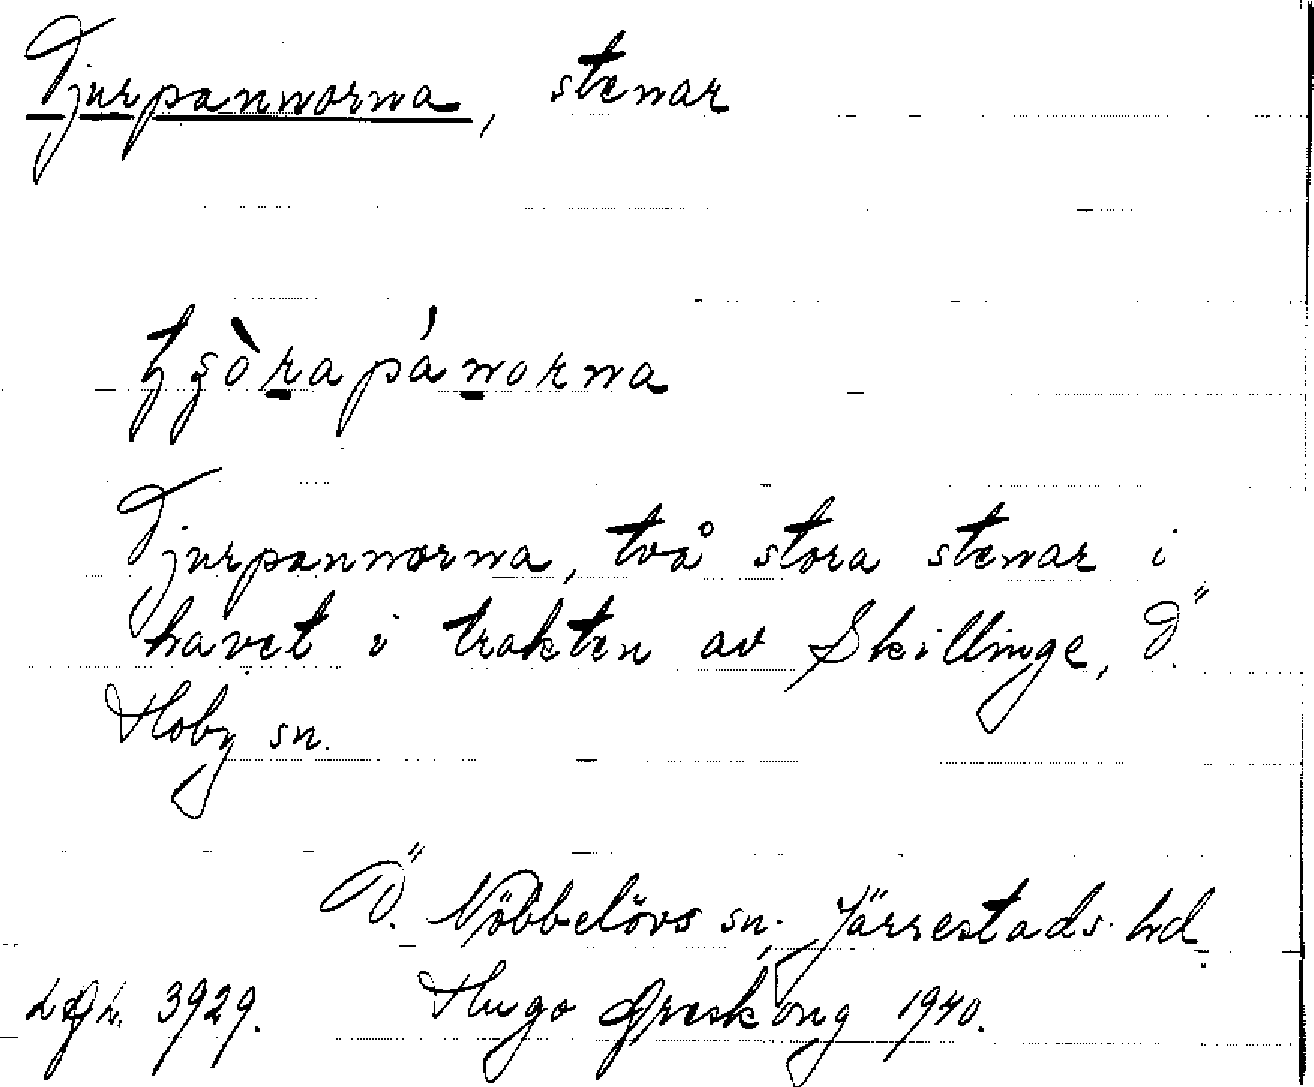 Tjurpannorna, stenar
Tjurpannorna, två stora stenar i
havet i trakten av Skillinge, Ö.
Hoby sn.
Ö. Nöbbelövs sn, Järrestads hd.
3929. Hugo Areskoug 1940.